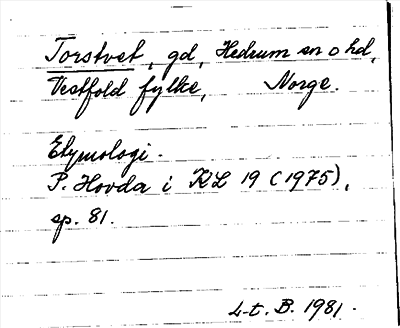 Torstvet, gd, Hedrum sn o hd,
Vestfold fylke, Norge.
Etymologi.
P. Hovda i KL 19 (1975),
sp. 81.
L-t. B. 1981.